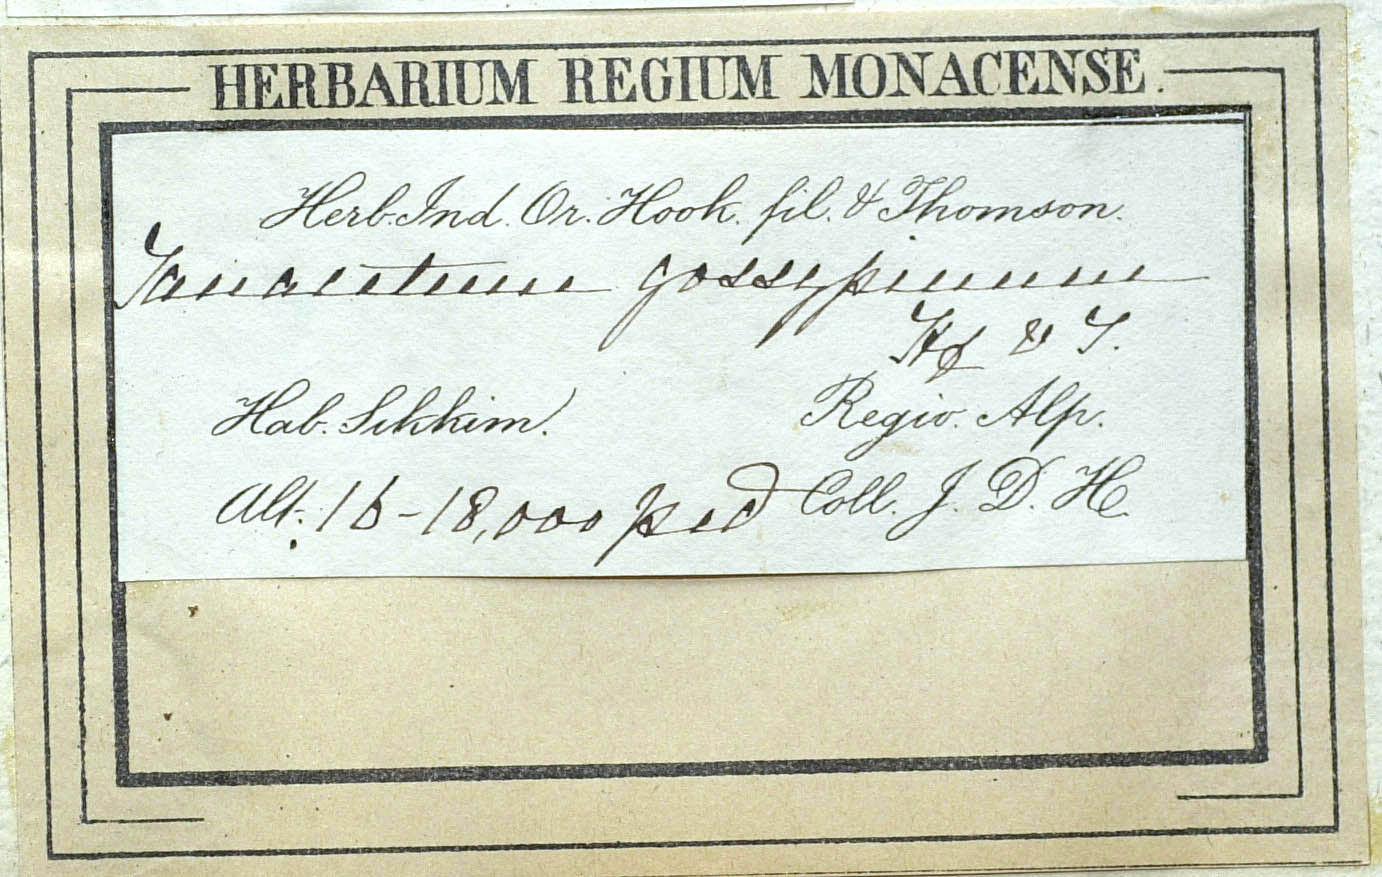 HERBARIUM REGIUM MONACENSE.
Herb. Ind. Or. Hook. fil. & Thomson.
Tanacetum gossypinum
Hf & T.
Hab. Sikkim. Regio. Alp.
Alt. 16-18,000 ped Coll. J. D. H.